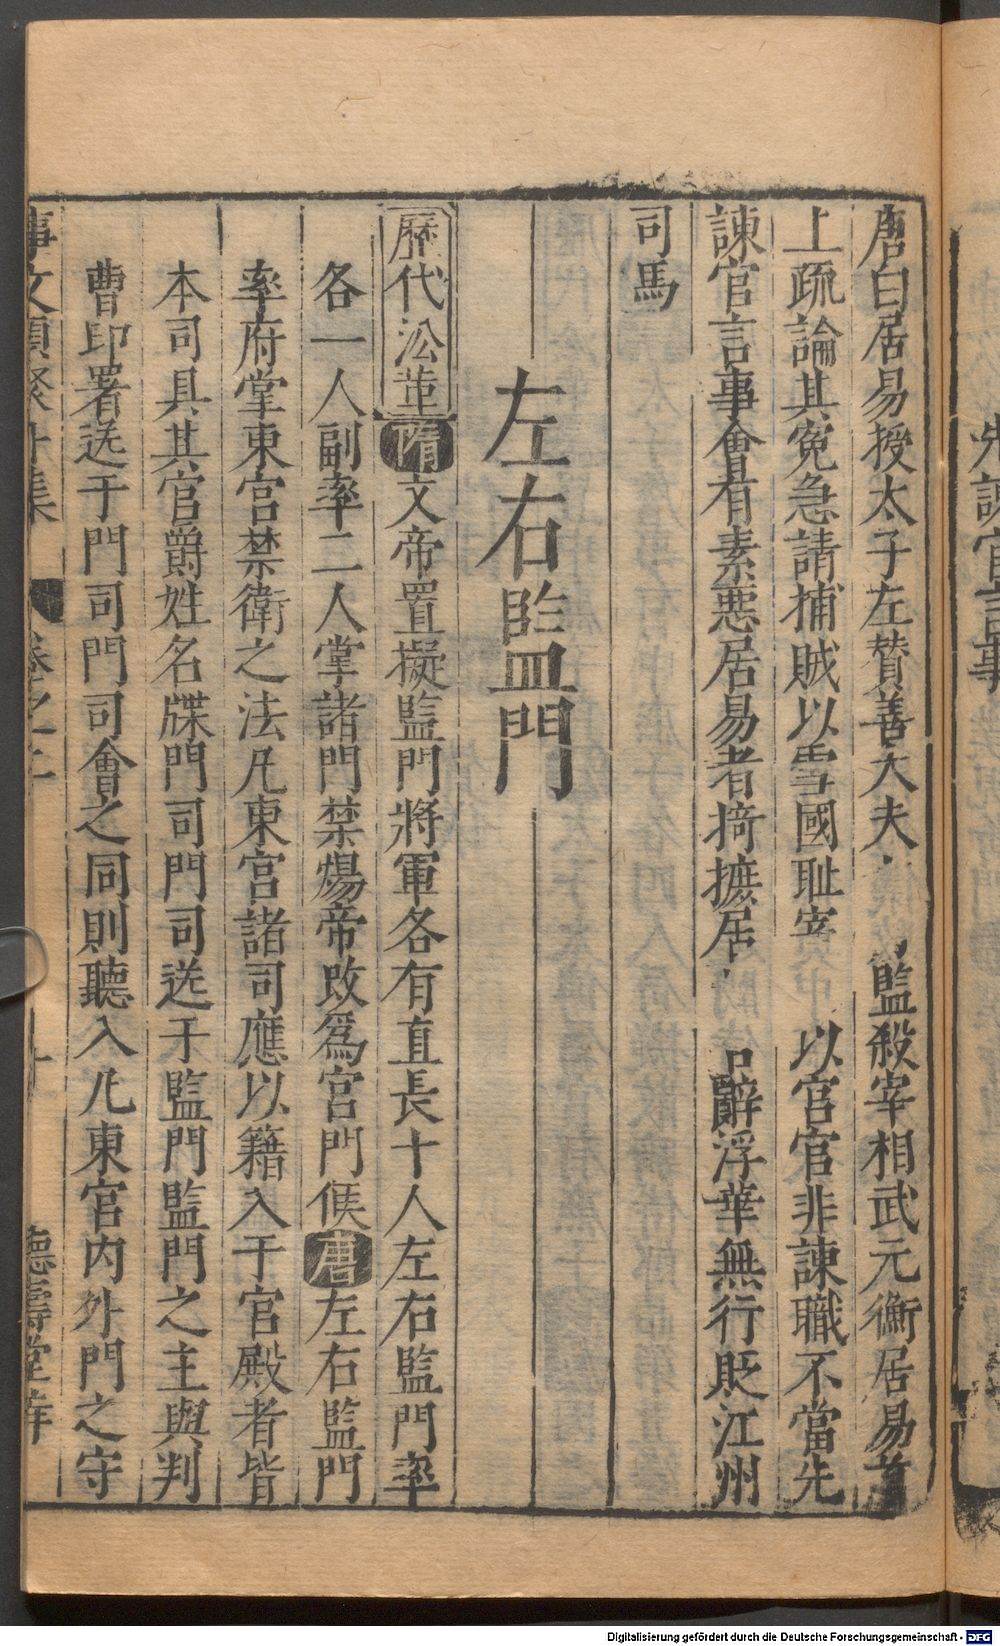 先諫官言事
唐白居易授太子左贊善大夫監殺宰相武元衡居易首
上疏論其冤急請捕賊以雪國耻宰以宮官非諫職不當先
諫官言事會有素惡居易者掎摭居言辭浮華無行貶江州
司馬
左右監門
歷代沿革隋文帝置擬監門將軍各有直長十人左右監門率
各一人副率二人掌諸門禁煬帝改爲宮門候唐左右監門
率府掌東宮禁衛之法凡東宮諸司應以籍入于宮殿者皆
本司具其官爵姓名牒門司門司送于監門監門之主與判
曹印署送于門司門司會之同則聽入凡東宮內外門之守
事文類聚 集 卷之 德壽堂梓
Digitalisierung gefördert durch die Deutsche Forschungsgemeinschaft - DFG